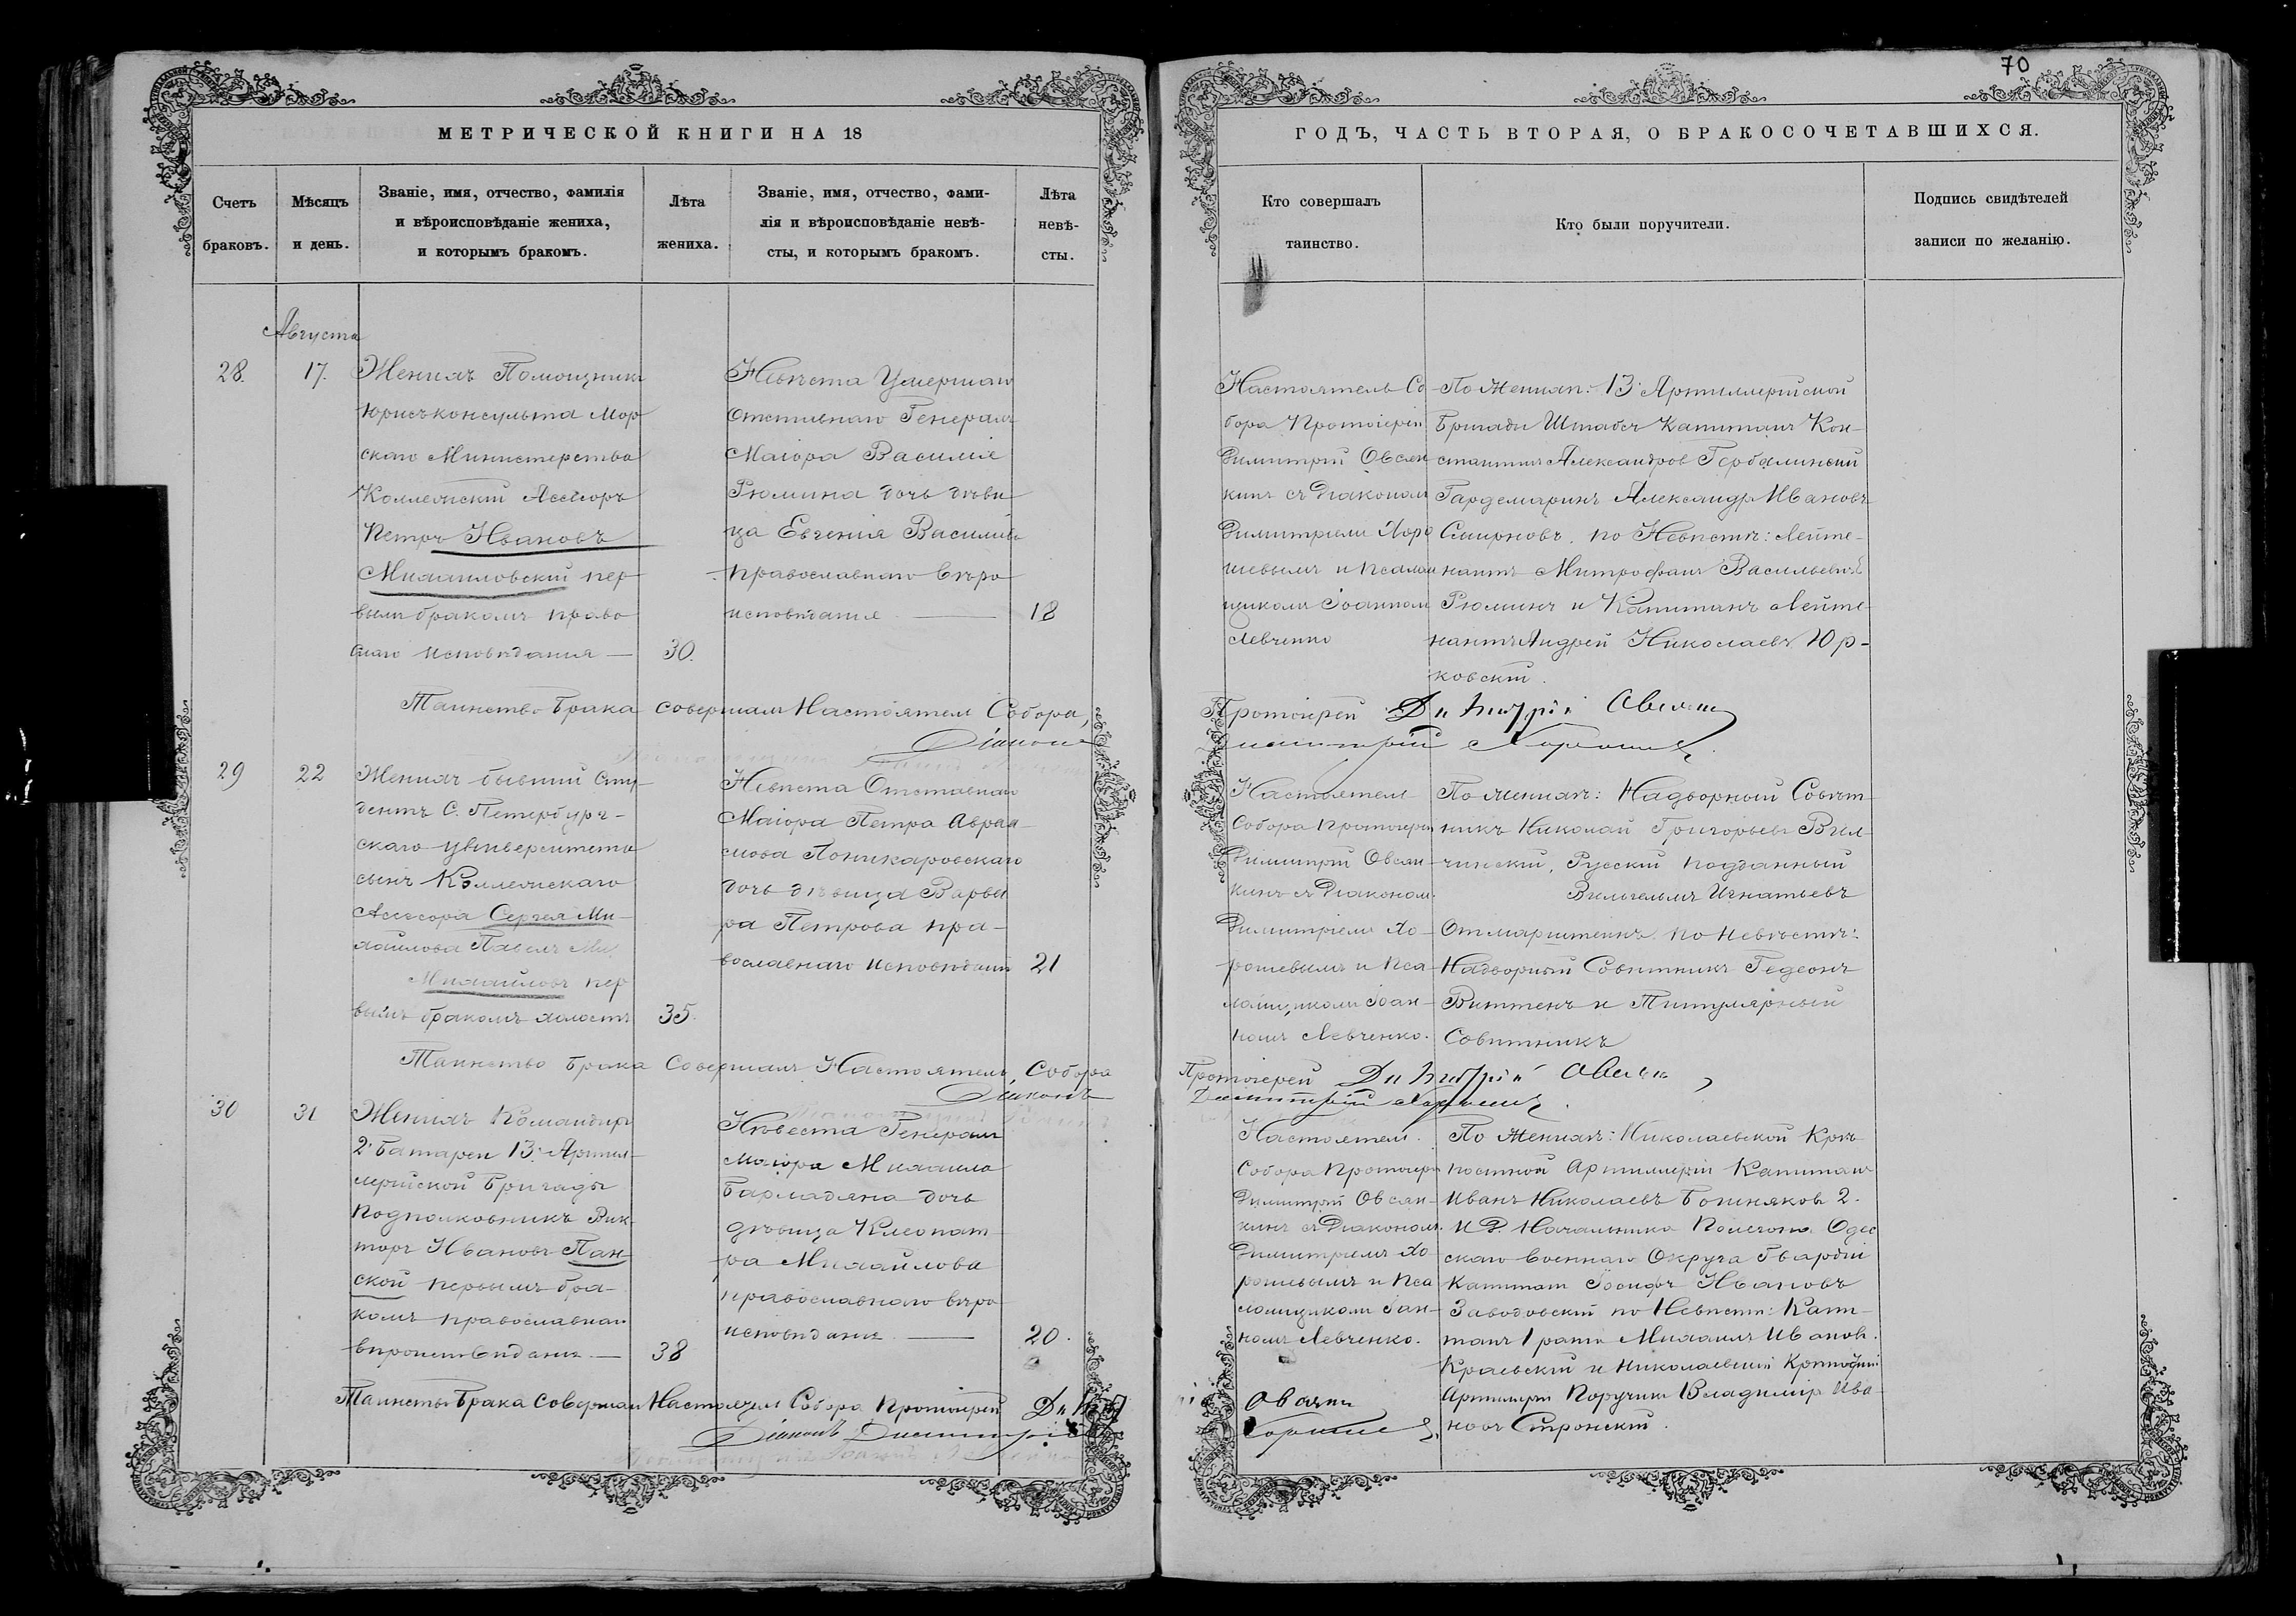 70
МЕТРИЧЕСКОЙ КНИГИ НА 18
Счетъ браковъ.
Мѣсяцъ и день.
Званіе, имя, отчество, фамилія
и вѣроисповѣданіе жениха,
и которымъ бракомъ.
Лѣта жениха.
Званіе, имя, отчество, фами-
лія и вѣроисповѣданіе невѣ-
сты, и которымъ бракомъ.
Лѣта невѣ-
сты.
Августа
28.
17.
Женихъ Помощникъ
Юрисъконсульта Мор
скаго Министерства
Коллежскій Ассесоръ
Петръ Ивановъ
Михаиловскій пер
вымъ бракомъ право
исповѣданія —
30.
Невѣста Умершаго
Отставнаго Генералъ
Маіора Василія
Рюмина дочь дѣви
ца Евгенія Васильева
православнаго вѣро
исповѣданія —
18
Таинство Брака совершалъ Настоятель Собора,
Діаконъ
29
22
Женихъ бывшій Сту-
дентъ С. Петербург-
скаго университета
сынъ Коллежскаго
Ассесора Сергея Ми-
хайлова Павелъ Ми
Михайловъ пер
вымъ бракомъ холостъ
35.
Невѣста Отставнаго
Маіора Петра Авраа-
мова Поникаровскаго
дочь дѣвица Варва
ра Петрова пра-
вославнаго исповѣданія
21
Таинство Брака Совершалъ Настоятель Собора
Діаконъ
30
31
Женихъ Командиръ
2й Батареи 13й Артил-
лерійской Бригады
Подполковникъ Вик-
торъ Ивановъ Пан-
ской первымъ бра-
комъ православнаго
вѣроисповѣданія —
38
Невѣста Генералъ
Маіора Михаила
дочь
дѣвица Клеопат-
ра Михайлова
православнаго вѣро
исповѣданія —
20.
Таинство Брака Совершалъ Настоятель Собора Протоіерей
Діаконъ Димитрій
ГОДЪ, ЧАСТЬ ВТОРАЯ, О БРАКОСОЧЕТАВШИХСЯ.
Кто совершалъ
таинство.
Кто были поручители.
Подпись свидѣтелей
записи по желанію.
Настоятель Со
бора Протоіерей
Димитрій Овсян
кинъ съ Діакономъ
Димитріемъ Хоро
шевымъ и Псалом
щикомъ Іоанномъ
Левченко
По Женихѣ: 13й Артиллерійской
Бригады Штабсъ Капитанъ Кон-
стантинъ Александров
Гардемаринъ Александръ Ивановъ
Смирновъ, по Невѣстѣ: Лейте-
нантъ Митрофанъ Васильевичъ
Рюминъ и Капитанъ Лейте-
нантъ Андрей Николаевъ Юр-
ковскій.
Протоіерей Димитрій
Димитрій
Настоятель
Собора Протоіерей
Димитрій Овсян-
кинъ съ Діакономъ
Димитріемъ Хо-
рошевымъ и Пса-
ломщикомъ Іоан-
номъ Левченко.
По женихѣ: Надворный Совѣт-
никъ Николай Григорьевъ Вил-
чинскій, Русскій подданный
Вильгельмъ Игнатьевъ
по невѣстѣ:
Надворный Совѣтникъ Гедеонъ
Виттенъ и Титулярный
Совѣтникъ
Протоіерей Димитрій
Димитрій
Настоятель
Собора Протоіерей
Димитрій Овсян-
кинъ съ Діакономъ
Димитріемъ Хо
рошевымъ и Пса
ломщикомъ Іоан-
номъ Левченко.
По Женихѣ: Николаевской Крѣ-
постной Артиллеріи Капитанъ
Иванъ Николаевъ Бошняковъ 2.
И. Д. Начальника Одес
скаго Военнаго Округа Гвардіи
Капитанъ Іосифъ Ивановъ
Заводовскій по Невѣстѣ: Капи-
танъ 1 ранга Михаилъ Иванов.
Краевскій и Николаевской Крѣпостной
Артиллеріи Поручикъ Владиміръ Ива-
новъ Стронскій.